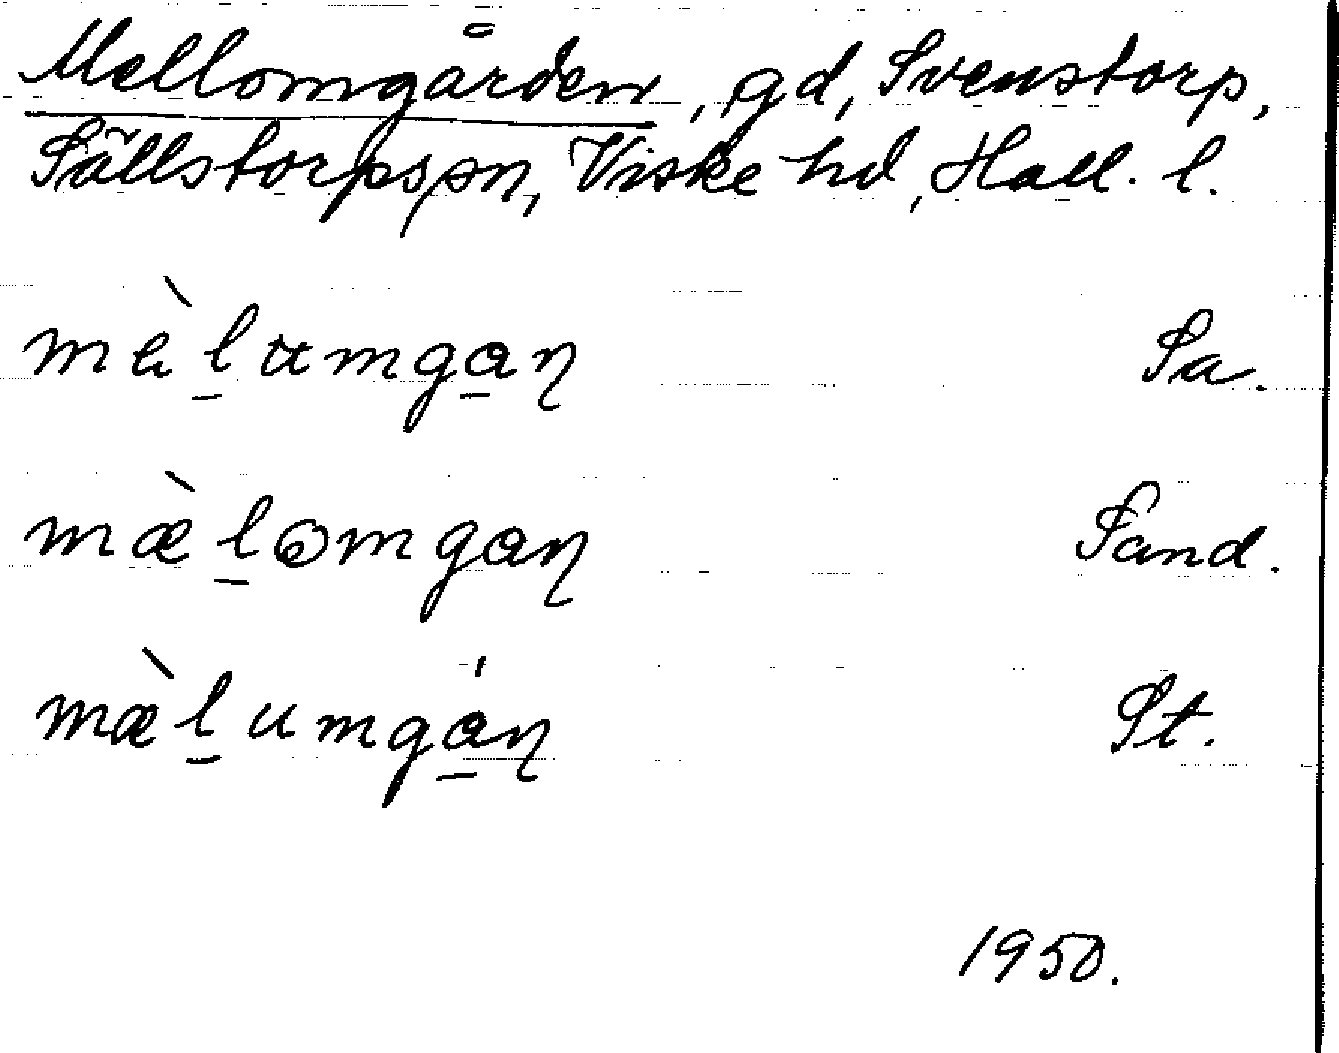 Mellomgården, gd, Svenstorp,
Sällstorps sn, Viske hd, Hall. l.
mèl̲umga̲ŋ Sa.
mæ̀l̲omgaŋ Sand.
mæ̀l̲umgá̲ŋ St.
1950.